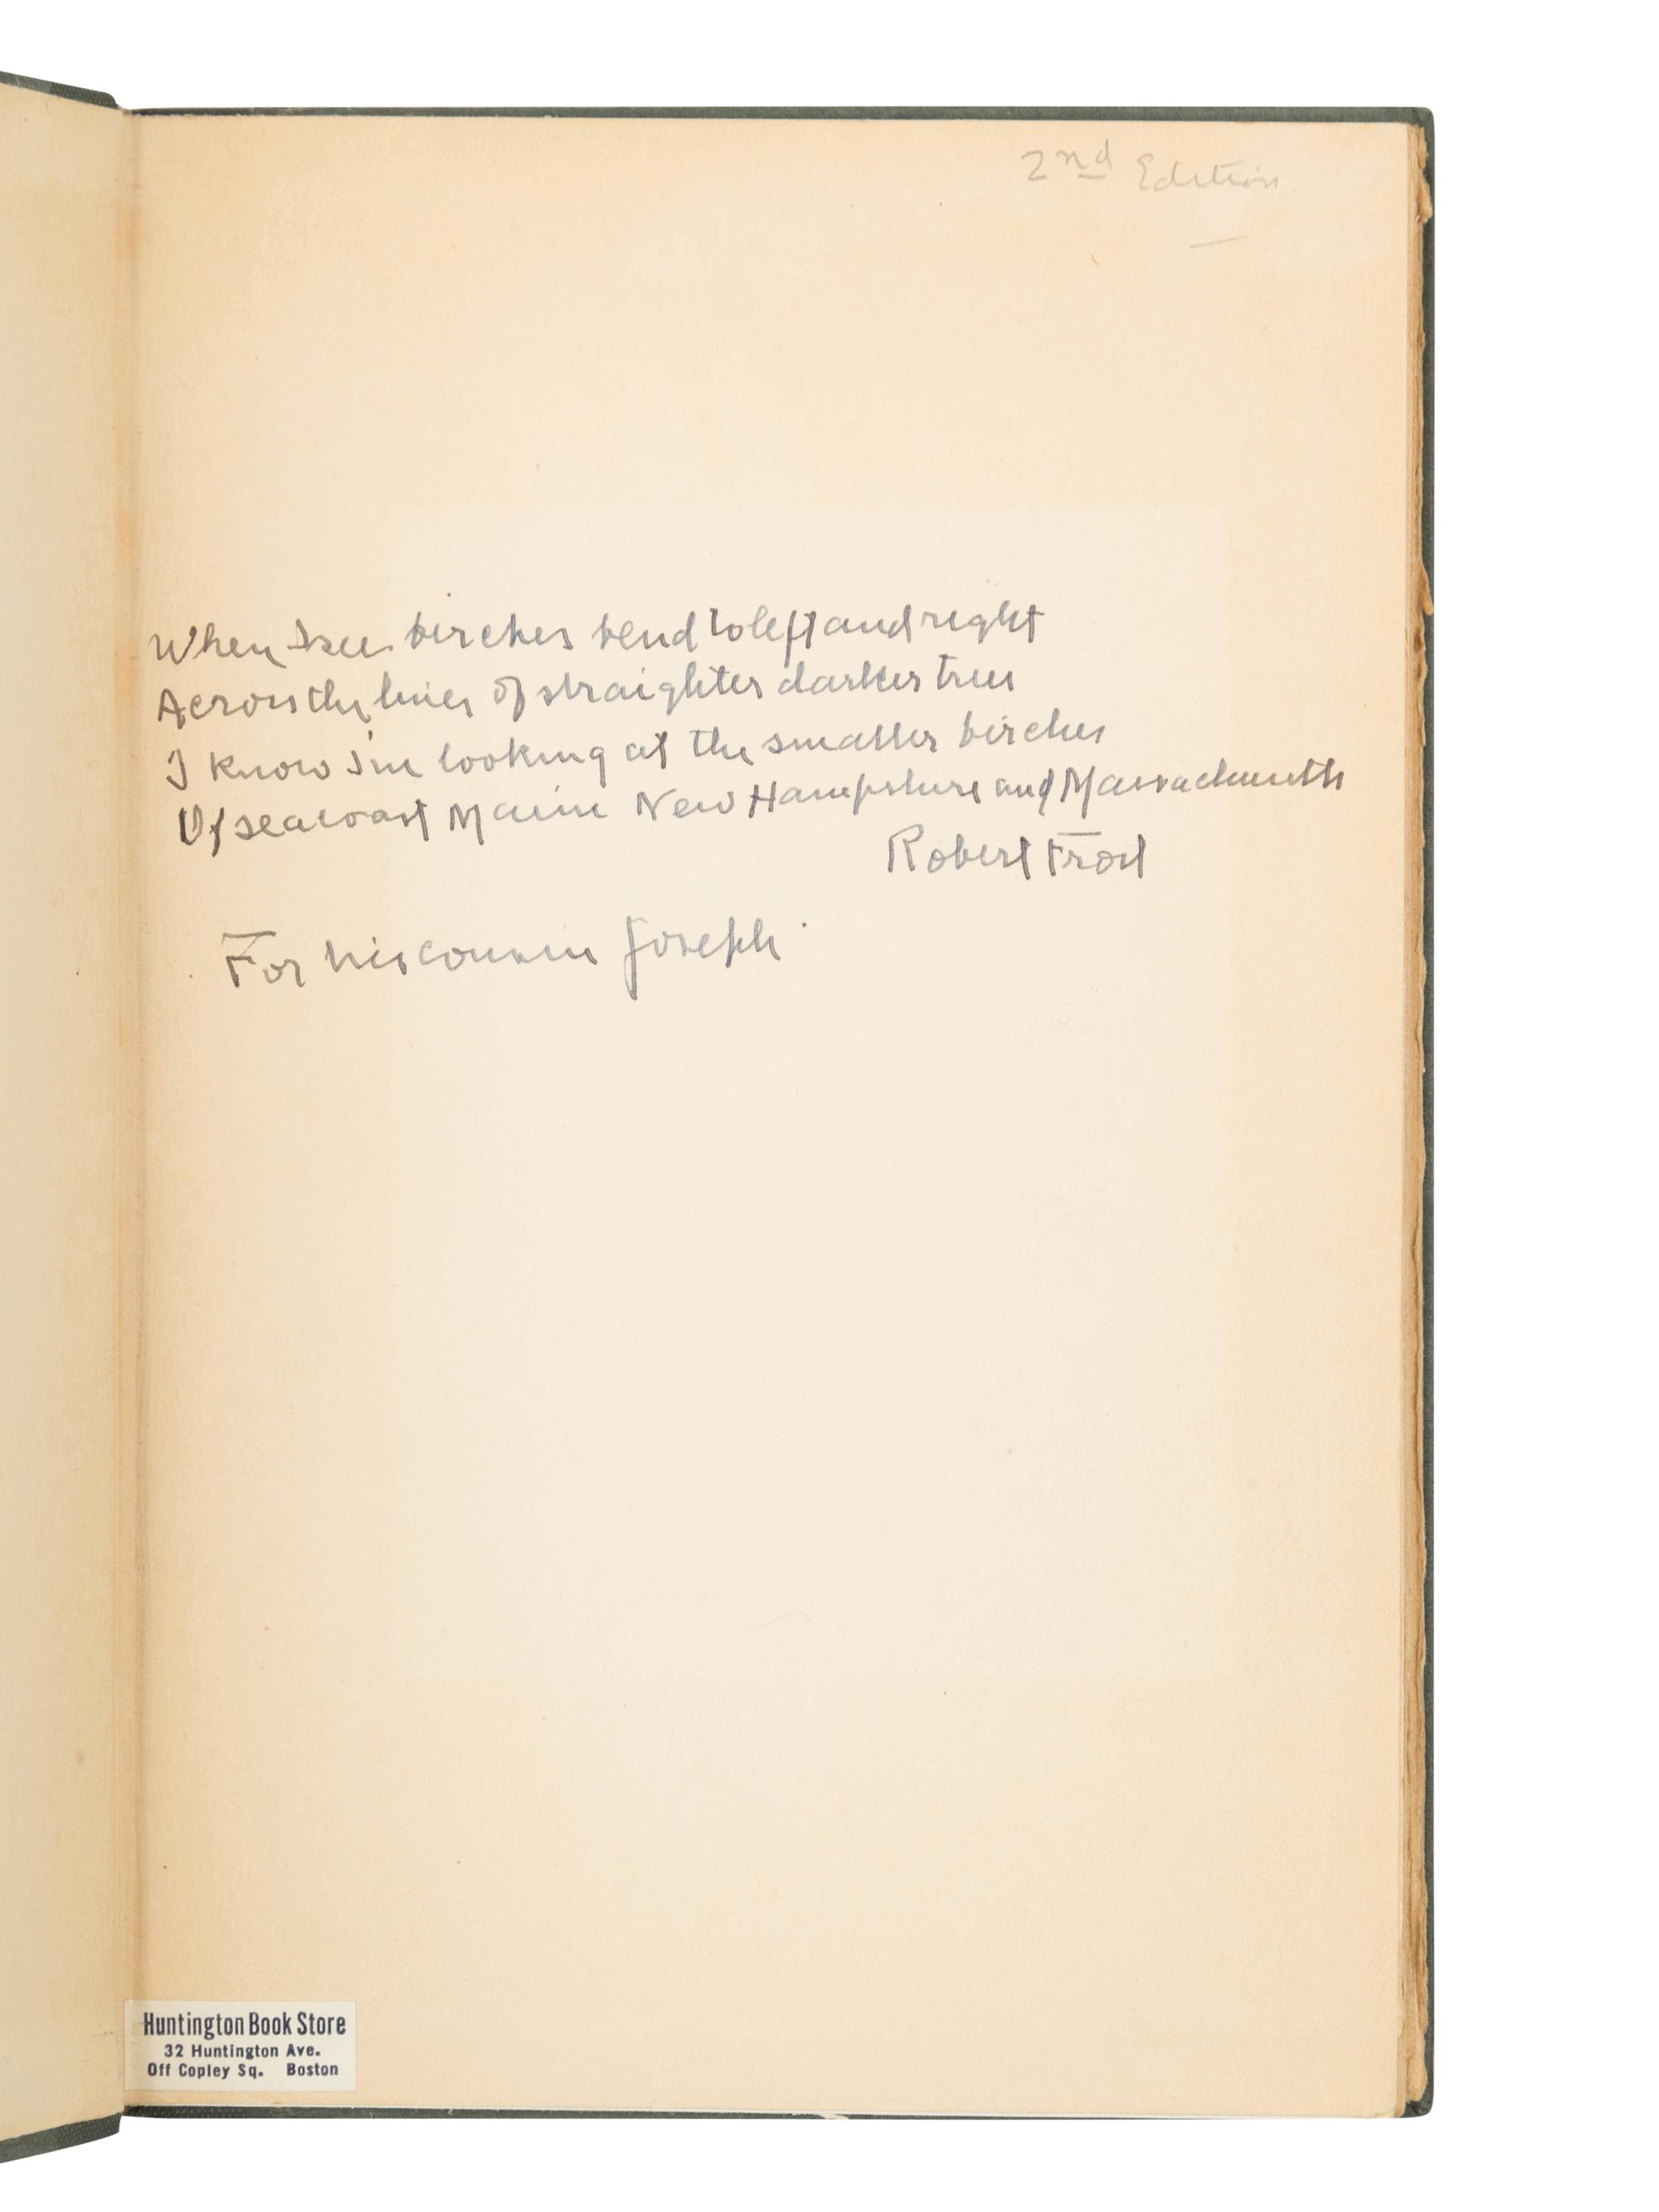 2nd Edition
When I see birches bend to left and right
Across the lines of straighter darker trees
I know I'm looking at the smaller birches
Of seacoast Maine New Hampshire and Massachusetts
Robert Frost
For his cousin Joseph
Huntington Book Store
32 Huntington Ave.
Off Copley Sq. Boston